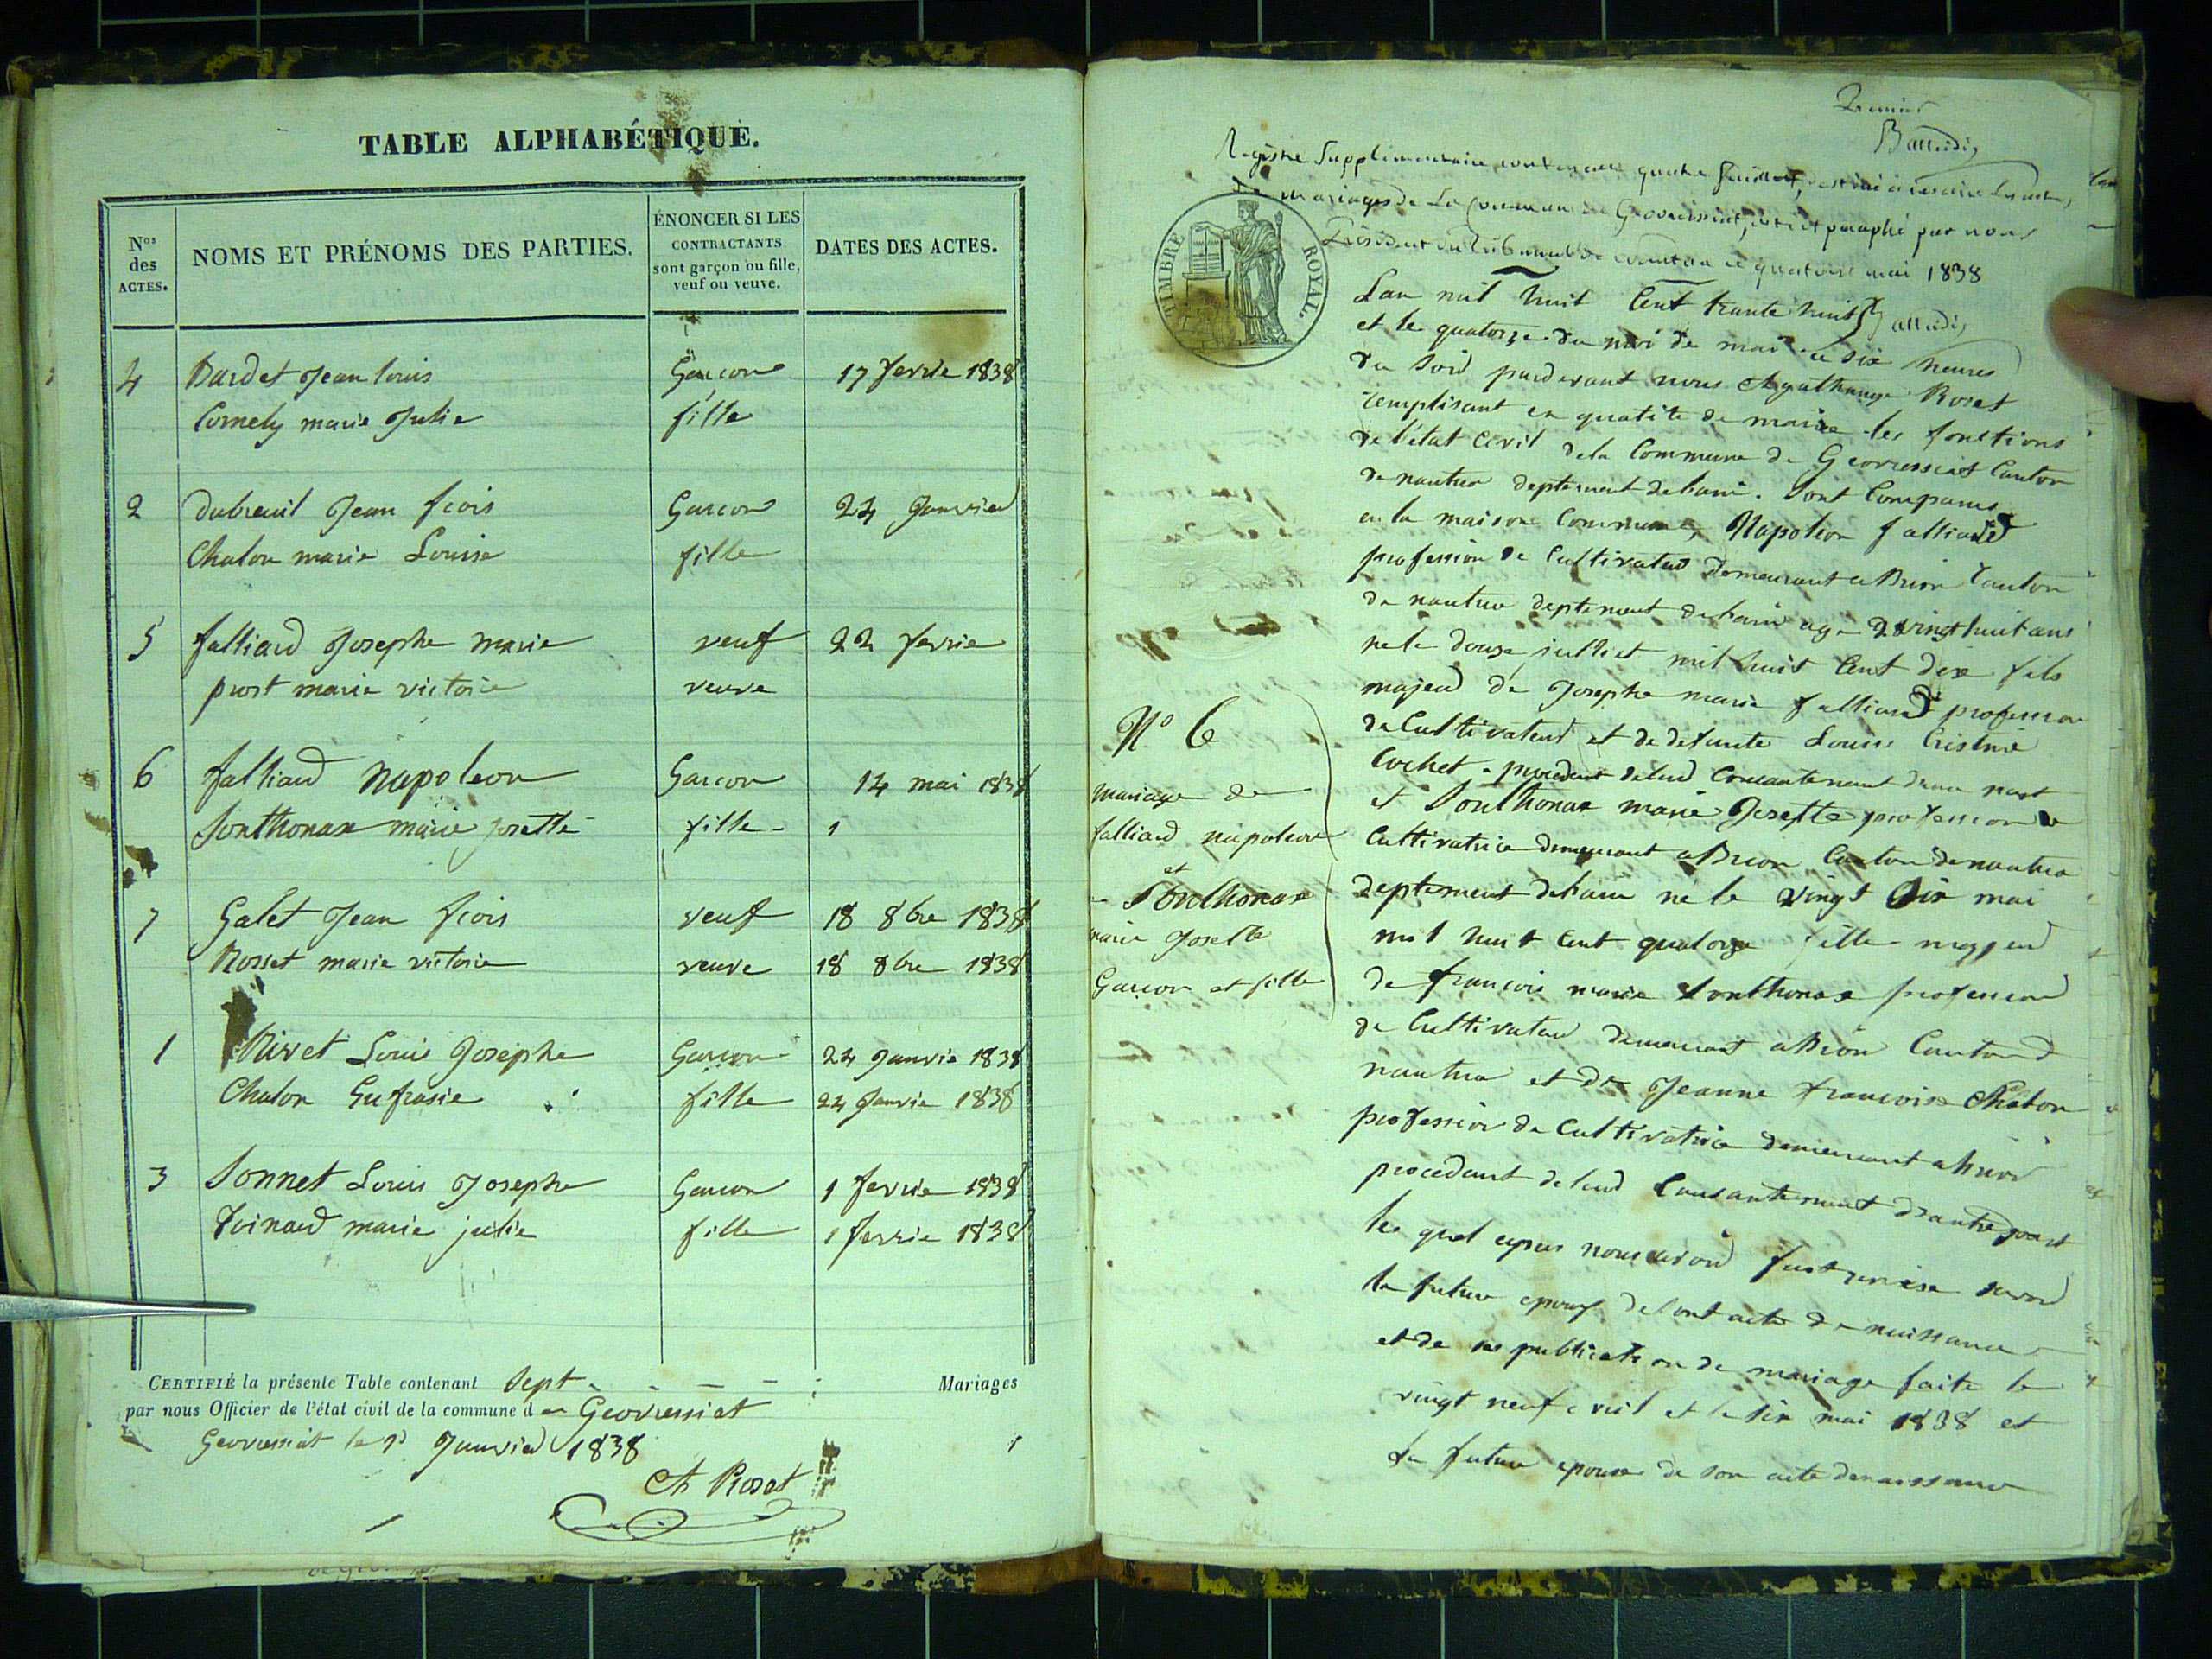 TABLE ALPHABÉTIQUE.
Nos des ACTES.
NOMS ET PRÉNOMS DES PARTIES.
ÉNONCER SI LES
CONTRACTANTS
sont garçon ou fille,
veuf ou veuve.
DATES DES ACTES.
4 Bardet Jean louis Garcon 17 fevrie 1838
Cornely marie Julie fille
2 dubreuil Jean fcois Garcon 24 Janvier
Chalon marie Louise fille
5 falliard Josephe marie veuf 22 fevrie
prost marie victoire veuve
6 falliard Napoleon Garcon 14 mai 1838
Sonthonax marie josette fille 1
7 Galet Jean fcois veuf 18 8bre 1838
Rosset marie victoire veuve 18 8bre 1838
1 Nivet Louis Josephe Garcon 24 Janvie 1838
Chalon Eufrasie fille 24 Janvie 1838
3 Sonnet Louis Josephe Garcon 1 fevrie 1838
Toinard marie julie fille 1 fevrie 1838
CERTIFIÉ la présente Table contenant Sept Mariages
par nous Officier de l'état civil de la commune de Geovressiat
Geovressiat le Janvier 1838
Roset
Premier
Registre Supplémentaire contenant quatre feuillets, destiné à
mariages de La Commune de Geovressiat, coté et paraphé par nous
Président du Tribunal de Nantua le quatorze mai 1838
TIMBRE ROYAL.
Lan mil huit Cent trante huit
et le quatorze du moi de mai a six heures
du soir pardevant nous Roset
remplisant en qualite de maire les fonctions
de l'état Civil dela Commune de Geovressiat Canton
de nantua deptement delain. Sont Comparus
en la maison Commune, Napoleon falliard
profession de Cultivateur demeurant a Brion Canton
de nantua deptement delain age de vingt huit ans
ne le douze julliet mil huit Cent dix fils
majeur de Josephe marie falliard profession
de Cultivateur et de defunte Louise Cristine
Cochet. procedant delaud Consantement dune part
et Sonthonax marie Josette profession de
Cultivatrice demeurant a Brion Canton de nantua
deptement delain né le vingt six mai
mil huit Cent quatorze fille majeur
de francois marie Sonthonax profession
de Cultivateur demeurant a Brion Canton d
nantua et de Jeanne francoise Chalon
profession de Cultivatrice demeurant a brion
procedant delaud Consantement d'autre part
les quel nous fait
la future epoux de sont acte de naissance
et de ses publication de mariage faite le
vingt neuf avril et le six mai 1838 et
la future epouse de son acte denaissance
No 6
mariage de
falliard napoleon
et
Sonthonax
marie Josette
Garcon et fille